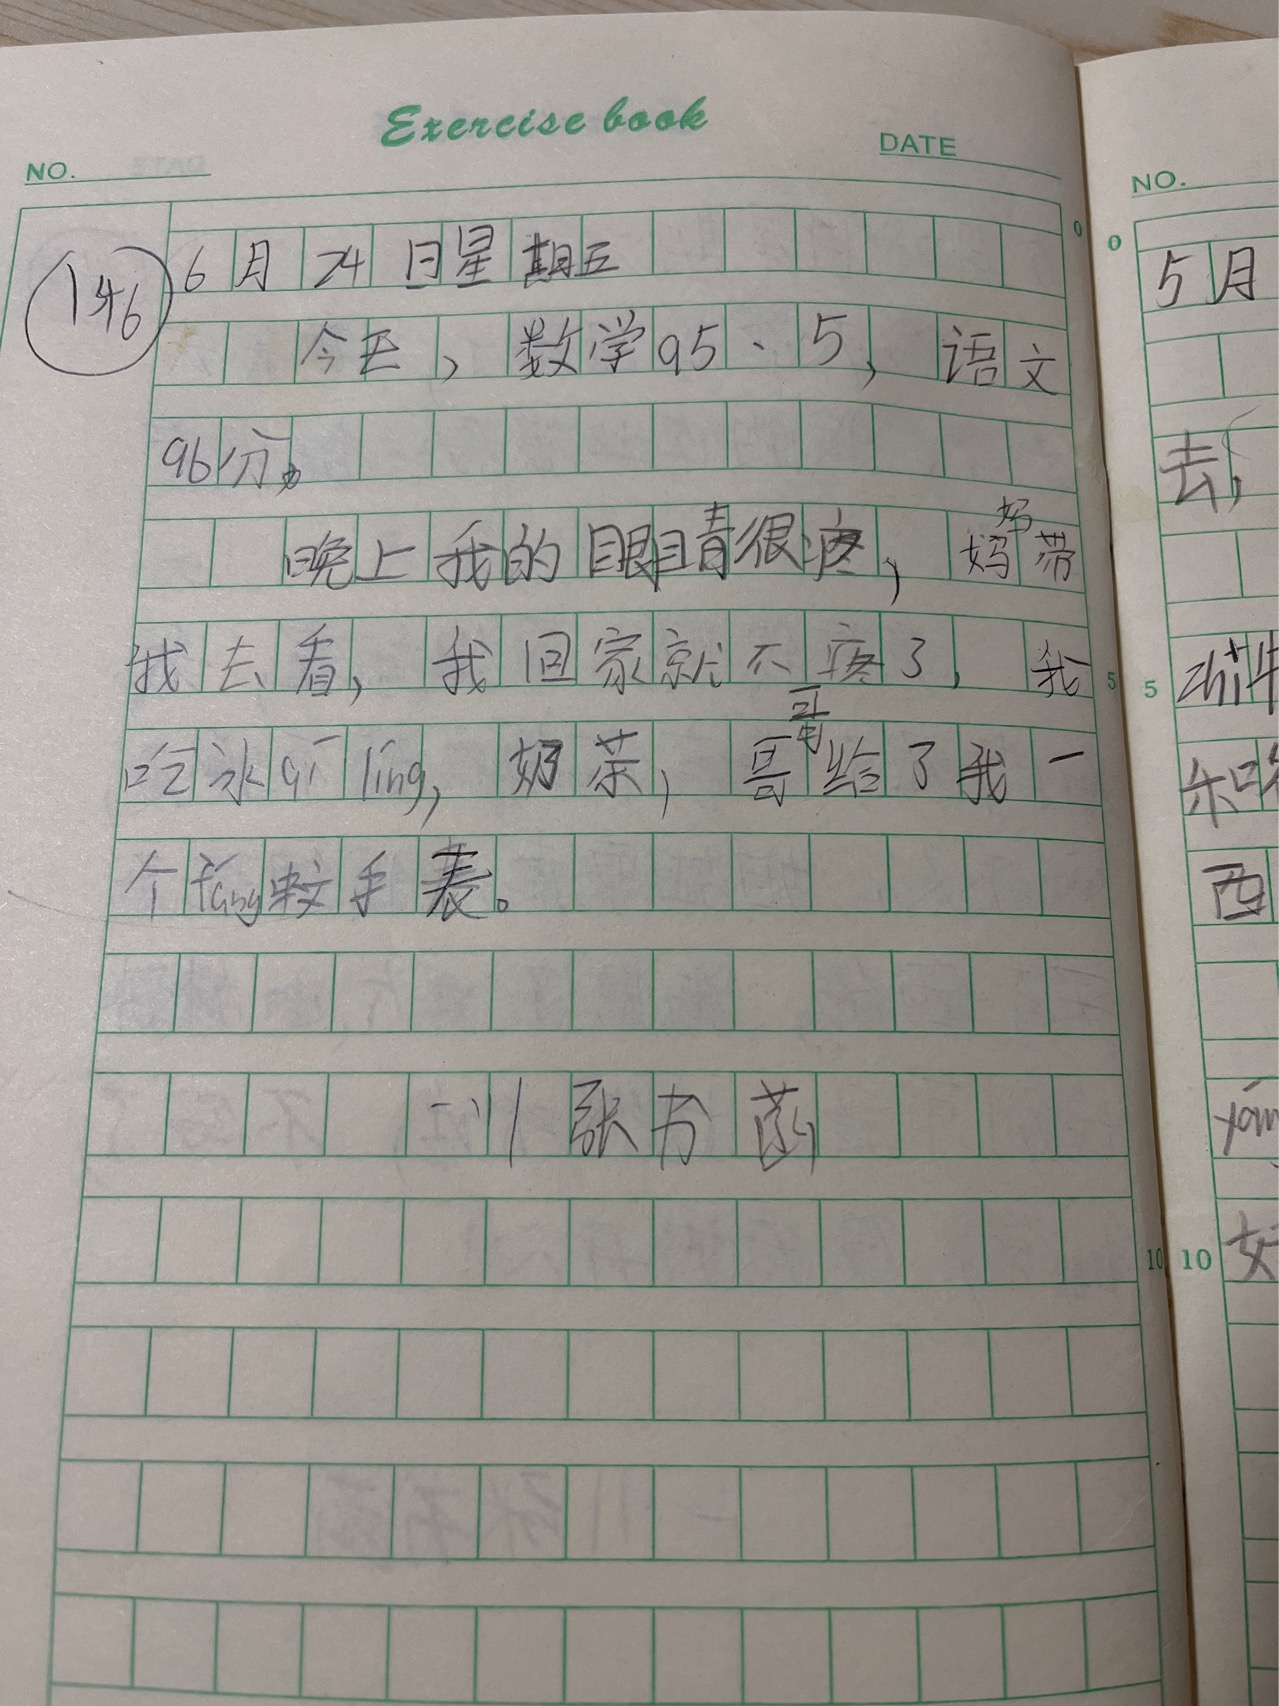 Exercise book
NO.
DATE
146
6月24日星期五
今天，数学95、5，语文
96分。
晚上我的眼睛很疼，妈妈带
我去看，我回家就不疼了，我
吃冰qí líng，奶茶，哥哥给了我一
个fáng蚊手表。
张
0
5
10
NO.
0
5月
去，
5
西
10